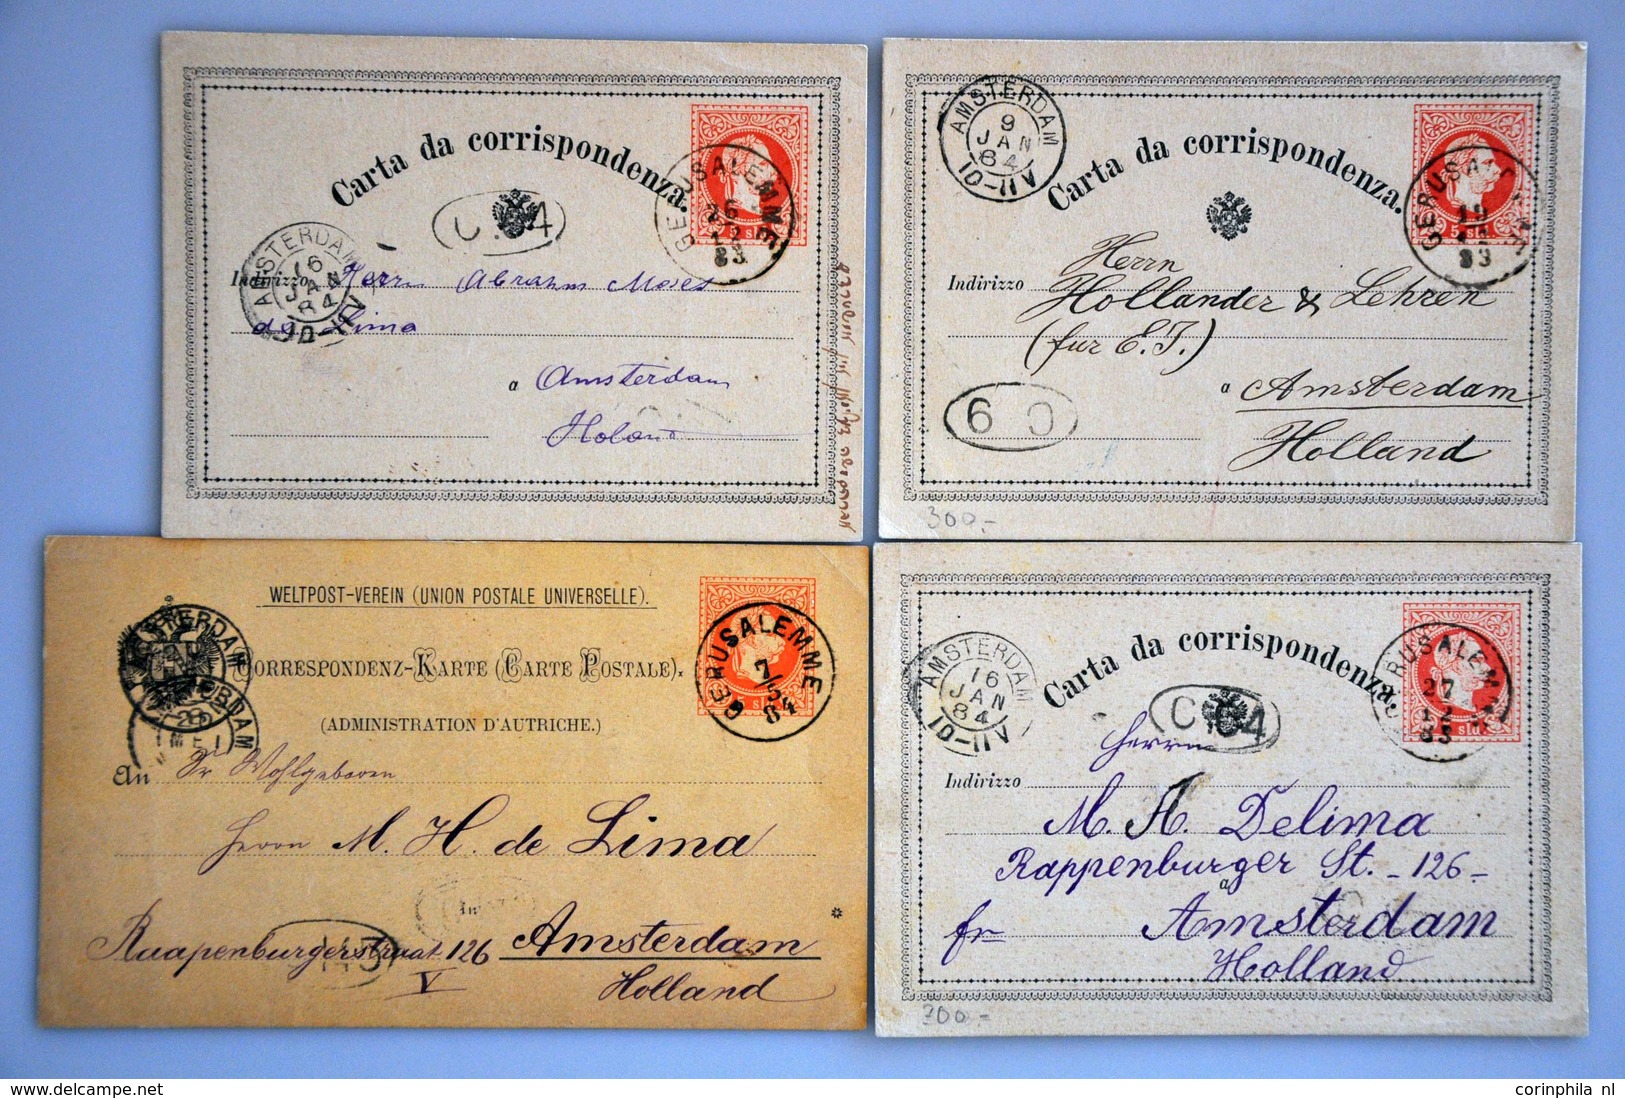 Carta da corrispondenza.
GERUSALEMME
26
12
83
C. 64
AMSTERDAM
16
JAN
84
10-11V
Indirizzo Herrn Abraham Moses
de Lima
a Amsterdam
Holand
AMSTERDAM
9
JAN
84
10-11V
Carta da corrispondenza.
5 sld.
GERUSALEMME
19
12
83
Herrn
Indirizzo Hollander & Lehren
(fur E. J.)
a Amsterdam
Holland
C 6
300,-
WELTPOST-VEREIN (UNION POSTALE UNIVERSELLE).
CORRESPONDENZ-KARTE (CARTE POSTALE).
(ADMINISTRATION D'AUTRICHE.)
GERUSALEMME
84
AMSTERDAM
An Sr Wohlgeboren
Herrn M. H. de Lima
Raapenburgerstraat 126 Amsterdam
V Holland
Carta da corrispondenza.
GERUSALEMME
27
12
83
AMSTERDAM
16
JAN
84
10-11V
C. 64
Herrn
Indirizzo
M. A. Delima
Rappenburger St. - 126 -
a
fr Amsterdam
Holland
300,-
corinphila nl